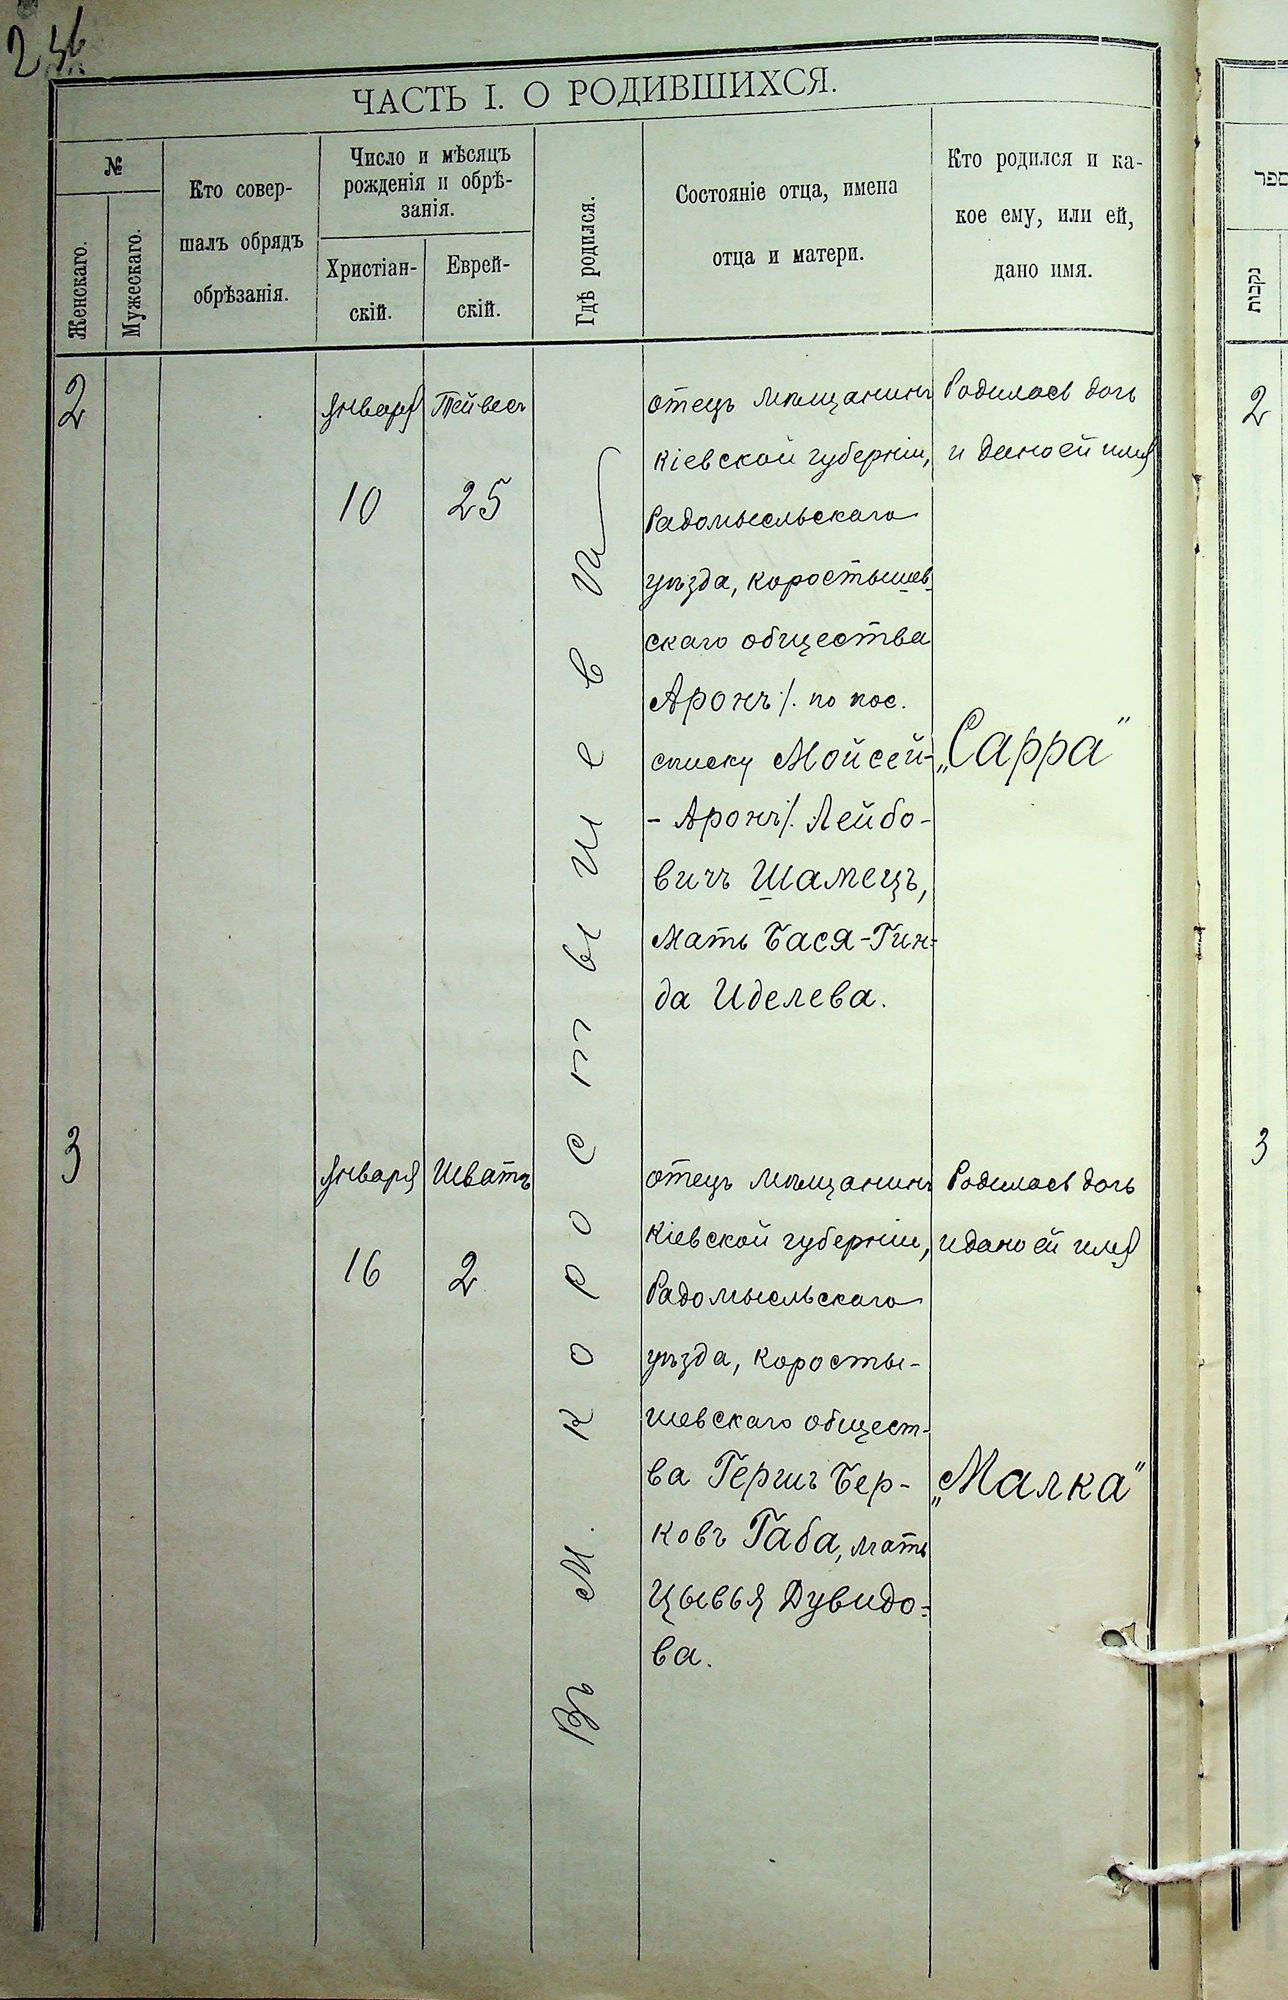 236
ЧАСТЬ I. О РОДИВШИХСЯ.
№
Женскаго.
Мужескаго.
Кто совер-
шалъ обрядъ
обрѣзанія.
Число и мѣсяцъ
рожденія и обрѣ-
занія.
Христіан-
скій.
Еврей-
скій.
Гдѣ родился.
Состояніе отца, имена
отца и матери.
Кто родился и ка-
кое ему, или ей,
дано имя.
2
января
10
Тейвесъ
25
Въ м. Коростышевѣ
отецъ мѣщанинъ
Кіевской губерніи,
Радомысльскаго
уѣзда, Коростышев-
скаго общества
Аронъ /. по пос.
списку Мойсей-
- Аронъ /. Лейбо-
вичъ Шамецъ,
мать Бася-Гин-
да Иделева.
Родилась дочь
и дано ей имя
„Сарра"
3
января
16
Шватъ
2
отецъ мѣщанинъ
Кіевской губерніи,
Радомысльскаго
уѣзда, Коросты-
шевскаго общест-
ва Гершъ Бер-
ковъ Габа, мать
Цывья Дувидо-
ва.
Родилась дочь
и дано ей имя
„Малка"
ספר
נקבות
2
3